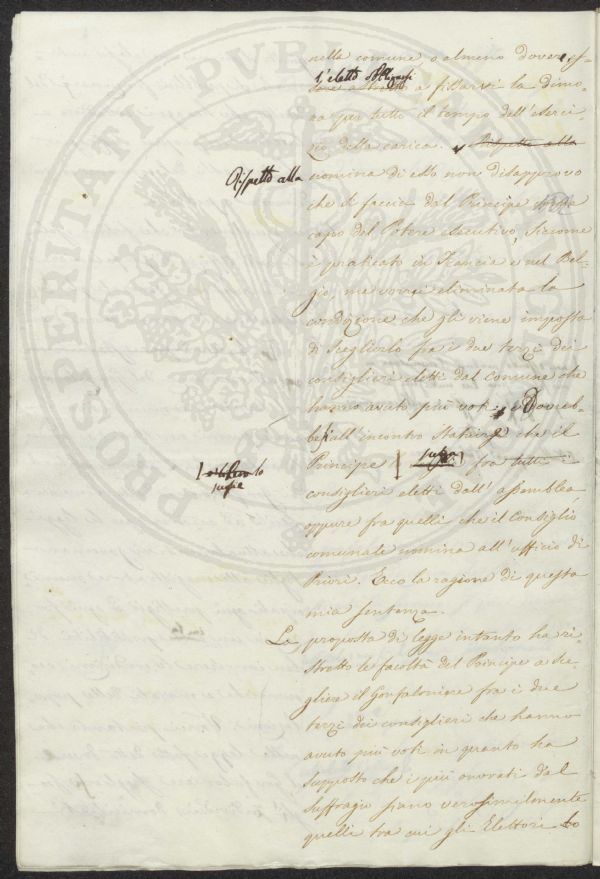 nella comune o almeno dover es-
l'eletto obbligarsi
a fissarvi la dimo-
ra per tutto il tempo dell'eserci-
zio della carica. Rispetto alla
Rispetto alla
nomina di esso non disapprovo
che si faccia dal Principe
capo del Potere esecutivo, siccome
è praticato in Francia e nel Bel-
gio, ma vorrei eliminata la
condizione che gli viene imposta
di sceglierlo fra i due terzi dei
consiglieri eletti dal Comune che
hanno avuto più voti. Dovreb-
besi all'incontro statuire che il
Principe fra tutti i
lo
consiglieri eletti dall'assemblea,
oppure fra quelli che il Consiglio
comunale nomina all'ufficio di
Priori. Ecco la ragione di questa
mia sentenza.
La proposta di legge intanto ha ri-
stretto le facoltà del Principe a sce-
gliere il Gonfaloniere fra i due
terzi dei consiglieri che hanno
avuto più voti in quanto ha
supposto che i più onorati dal
suffragio siano verosimilmente
quelli tra cui gli Elettori lo
PROSPERITATI PVBLICAE